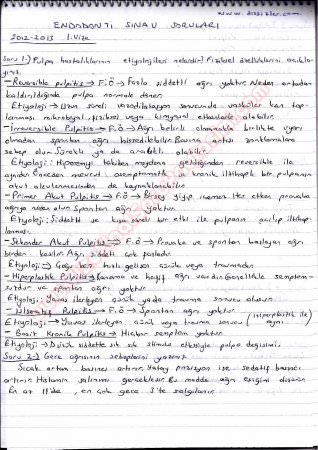 www.disazizler.com
ENDODONTİ SINAV SORULARI
2012-2013 1. Vize
Soru 1-) Pulpa hastalıklarının etiyolojileri nelerdir? Fiziksel özelliklerini açıkla-
yınız.
- Reversible pulpitis → F.Ö → Fazla şiddetli ağrı yoktur. Neden ortadan
kaldırıldığında pulpa normale döner.
Etiyoloji → Uzun süreli vasodilatasyon sonucunda vasküler kan top-
lanması, mikrobiyal, fiziksel veya kimyasal etkenlerle olabilir.
- İrreversible Pulpitis → F.Ö → Ağrı belirli olmamakla birlikte uyarı
olmadan spontan ağrı hissedilebilir. Basınç artışı zonklamalara
sebep olur. Sürekli ya da aralıklı olabilir.
Etiyoloji: Hiperemiyi takiben meydana geldiğinden reversible ile
aynıdır. Önceden mevcut asemptomatik kronik iltihabi bir pulpanın
akut alevlenmesinden de kaynaklanabilir.
- Primer Akut Pulpitis → F.Ö → Birşey yiyip içemez. Her etken provake
ağrıya neden olur. Spontan ağrı yoktur.
Etiyoloji: Şiddetli ve kısa süreli bir etki ile pulpanın açılıp iltihap-
lanması.
- Sekonder Akut Pulpitis → F.Ö → Provake ve spontan başlayan ağrı
birden kesilir. Ağrı şiddeti çok fazladır.
Etiyoloji → hızlı gelişen çürük veya travmadır.
- Hiperplastik Pulpitis → Kanama ve hafif ağrı vardır. Genellikle semptom-
sızdır ve spontan ağrı yoktur.
Etiyoloji: Yavaş ilerleyen çürük yada travma sonucu oluşur.
- Ülseratif Pulpitis → F.Ö → Spontan ağrı yoktur.
Etiyoloji → Yavaş ilerleyen çürük veya travma sonucu (hiperplastik ile aynı)
- Basit Kronik Pulpitis → Hiçbir semptom yoktur.
Etiyoloji → Düşük şiddette sık sık stimulu etkisiyle pulpa değişimi.
Soru 2-) Gece ağrısının sebeplerini yazınız?
Sıcak ortam basıncı artırır. Yatay pozisyon ise sedatif basıncı
artırır. Histamin salınımı gerçekleşir. Bu madde ağrı eşiğini düşürür.
En az 11'de, en çok gece 3'te salgılanır.